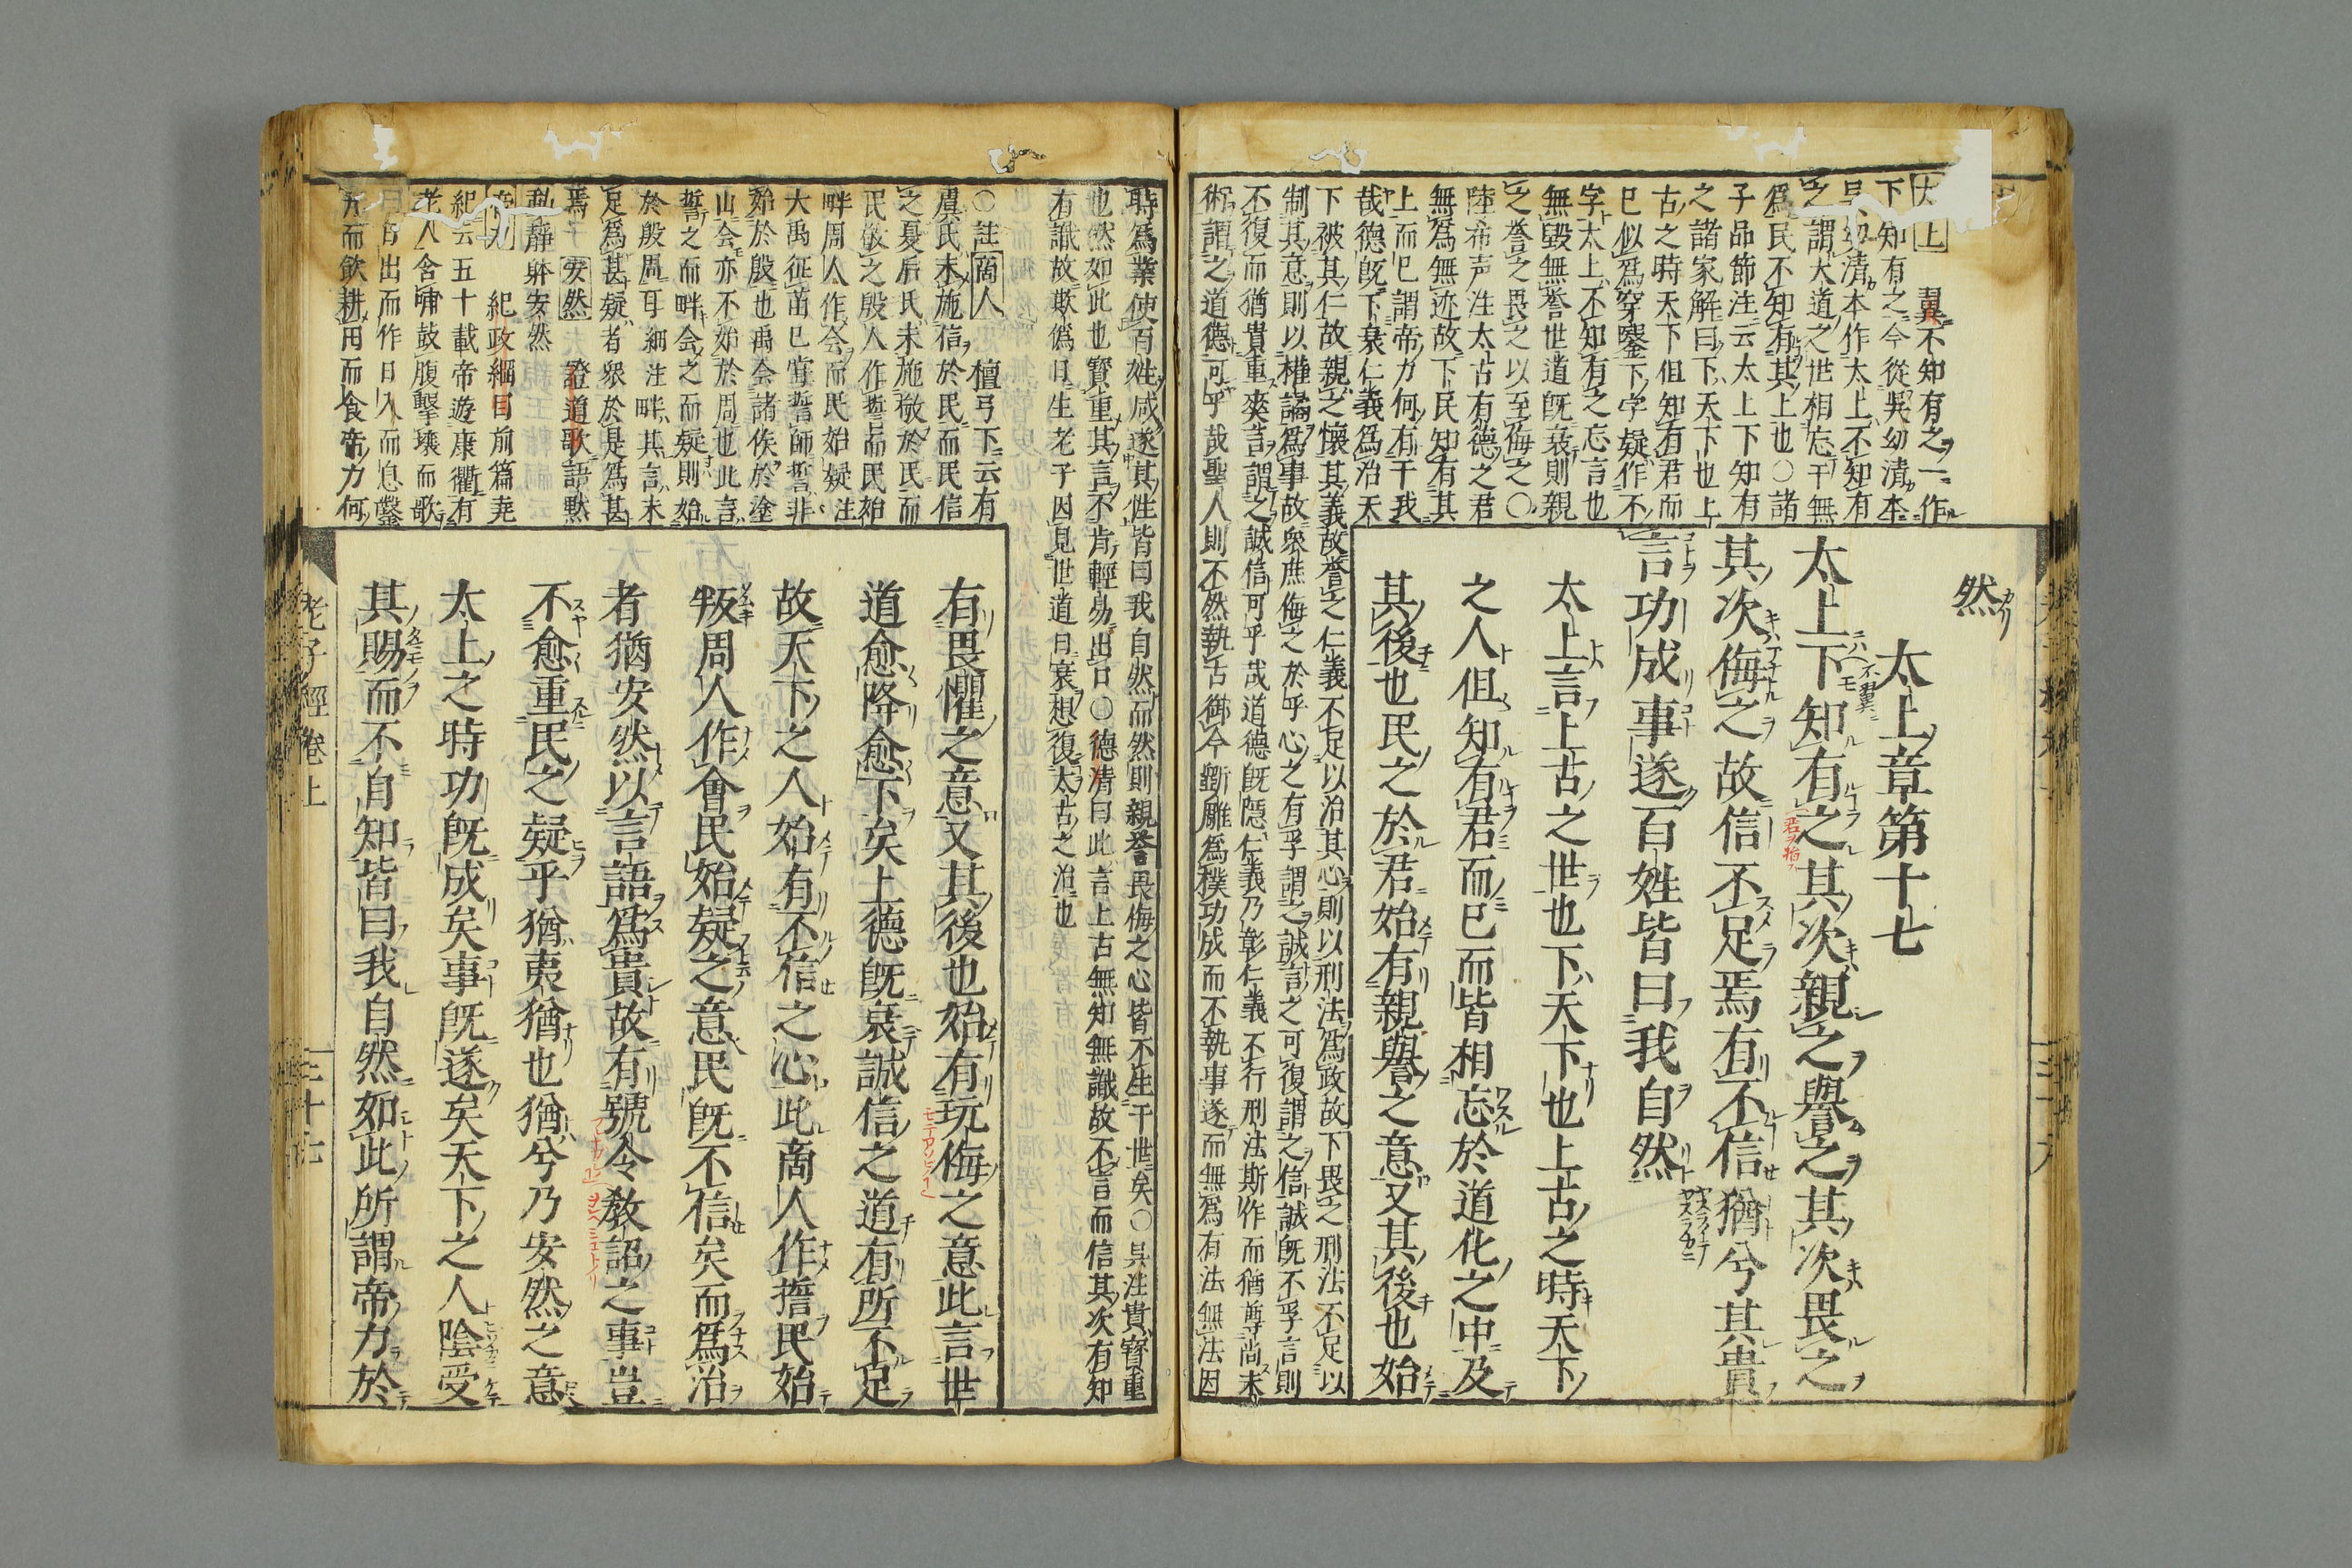 然
太上章第十七
太上下知有之其次親之譽之其次畏之
其次侮之故信不足焉有不信猶兮其貴
言功成事遂百姓皆曰我自然
太上言上古之世也下天下也上古之時天下
之人但知有君而已而皆相忘於道化之中及
其後也民之於君始有親譽之意又其後也始
太上
翼不知有之一作
下知有之今從吳幼清本
吳幼清本作太上不知有
之謂大道之世相忘于無
為民不知有其上也○諸
子品節注云太上下知有
之諸家解曰下天下也上
古之時天下但知有君而
已似為穿鑿下字疑作不
字太上不知有之忘言也
無毀無譽世道既衰則親
之譽之畏之以至侮之○
陸希声注太古有德之君
無為無迹故下民知有其
上而已謂帝力何有于我
哉德既下衰仁義為治天
下被其仁故親之懷其義故譽之仁義不足以治其心則以刑法為政故下畏之刑法不足以
制其意則以權譎為事故衆庶侮之於乎心之有孚謂之誠言之可復謂之信誠既不孚言則
不復而猶貴重爽言謂之誠信可乎哉道德既隱仁義乃彰仁義不行刑法斯作而猶尊尚末
術謂之道德可乎哉聖人則不然執古御今斲雕為樸功成而不執事遂而無為有法無法因
時為業使百姓咸遂其性皆曰我自然而然則親譽畏侮之心皆不生于世矣○吳注貴寶重
也然如此也寶重其言不肯輕易出口○德清曰此言上古無知無識故不言而信其次有知
有識故欺偽日生老子因見世道日衰想復太古之治也
○註商人 檀弓下云有
虞氏未施信於民而民信
之夏后氏未施敬於民而
民敬之殷人作誓而民始
畔周人作会而民始疑注
大禹征苗已嘗誓師誓非
始於殷也禹会諸侯於塗
山会亦不始於周也此言
誓之而畔会之而疑則始
於殷周耳細注畔其言未
足為甚疑者衆於是為甚
焉 安然 證道歌語默
動靜躰安然
帝力 紀政綱目前篇堯
紀云五十載帝遊康衢有
老人含哺鼓腹擊壤而歌
曰日出而作日入而息鑿
井而飲耕田而食帝力何
有畏懼之意又其後也始有玩侮之意此言世
道愈降愈下矣上德既衰誠信之道有所不足
故天下之人始有不信之心此商人作誓民始
叛周人作會民始疑之意民既不信矣而為治
者猶安然以言語為貴故有號令教詔之事豈
不愈重民之疑乎猶夷猶也猶兮乃安然之意
太上之時功既成矣事既遂矣天下之人陰受
其賜而不自知皆曰我自然如此所謂帝力於
老子經卷上
三十七